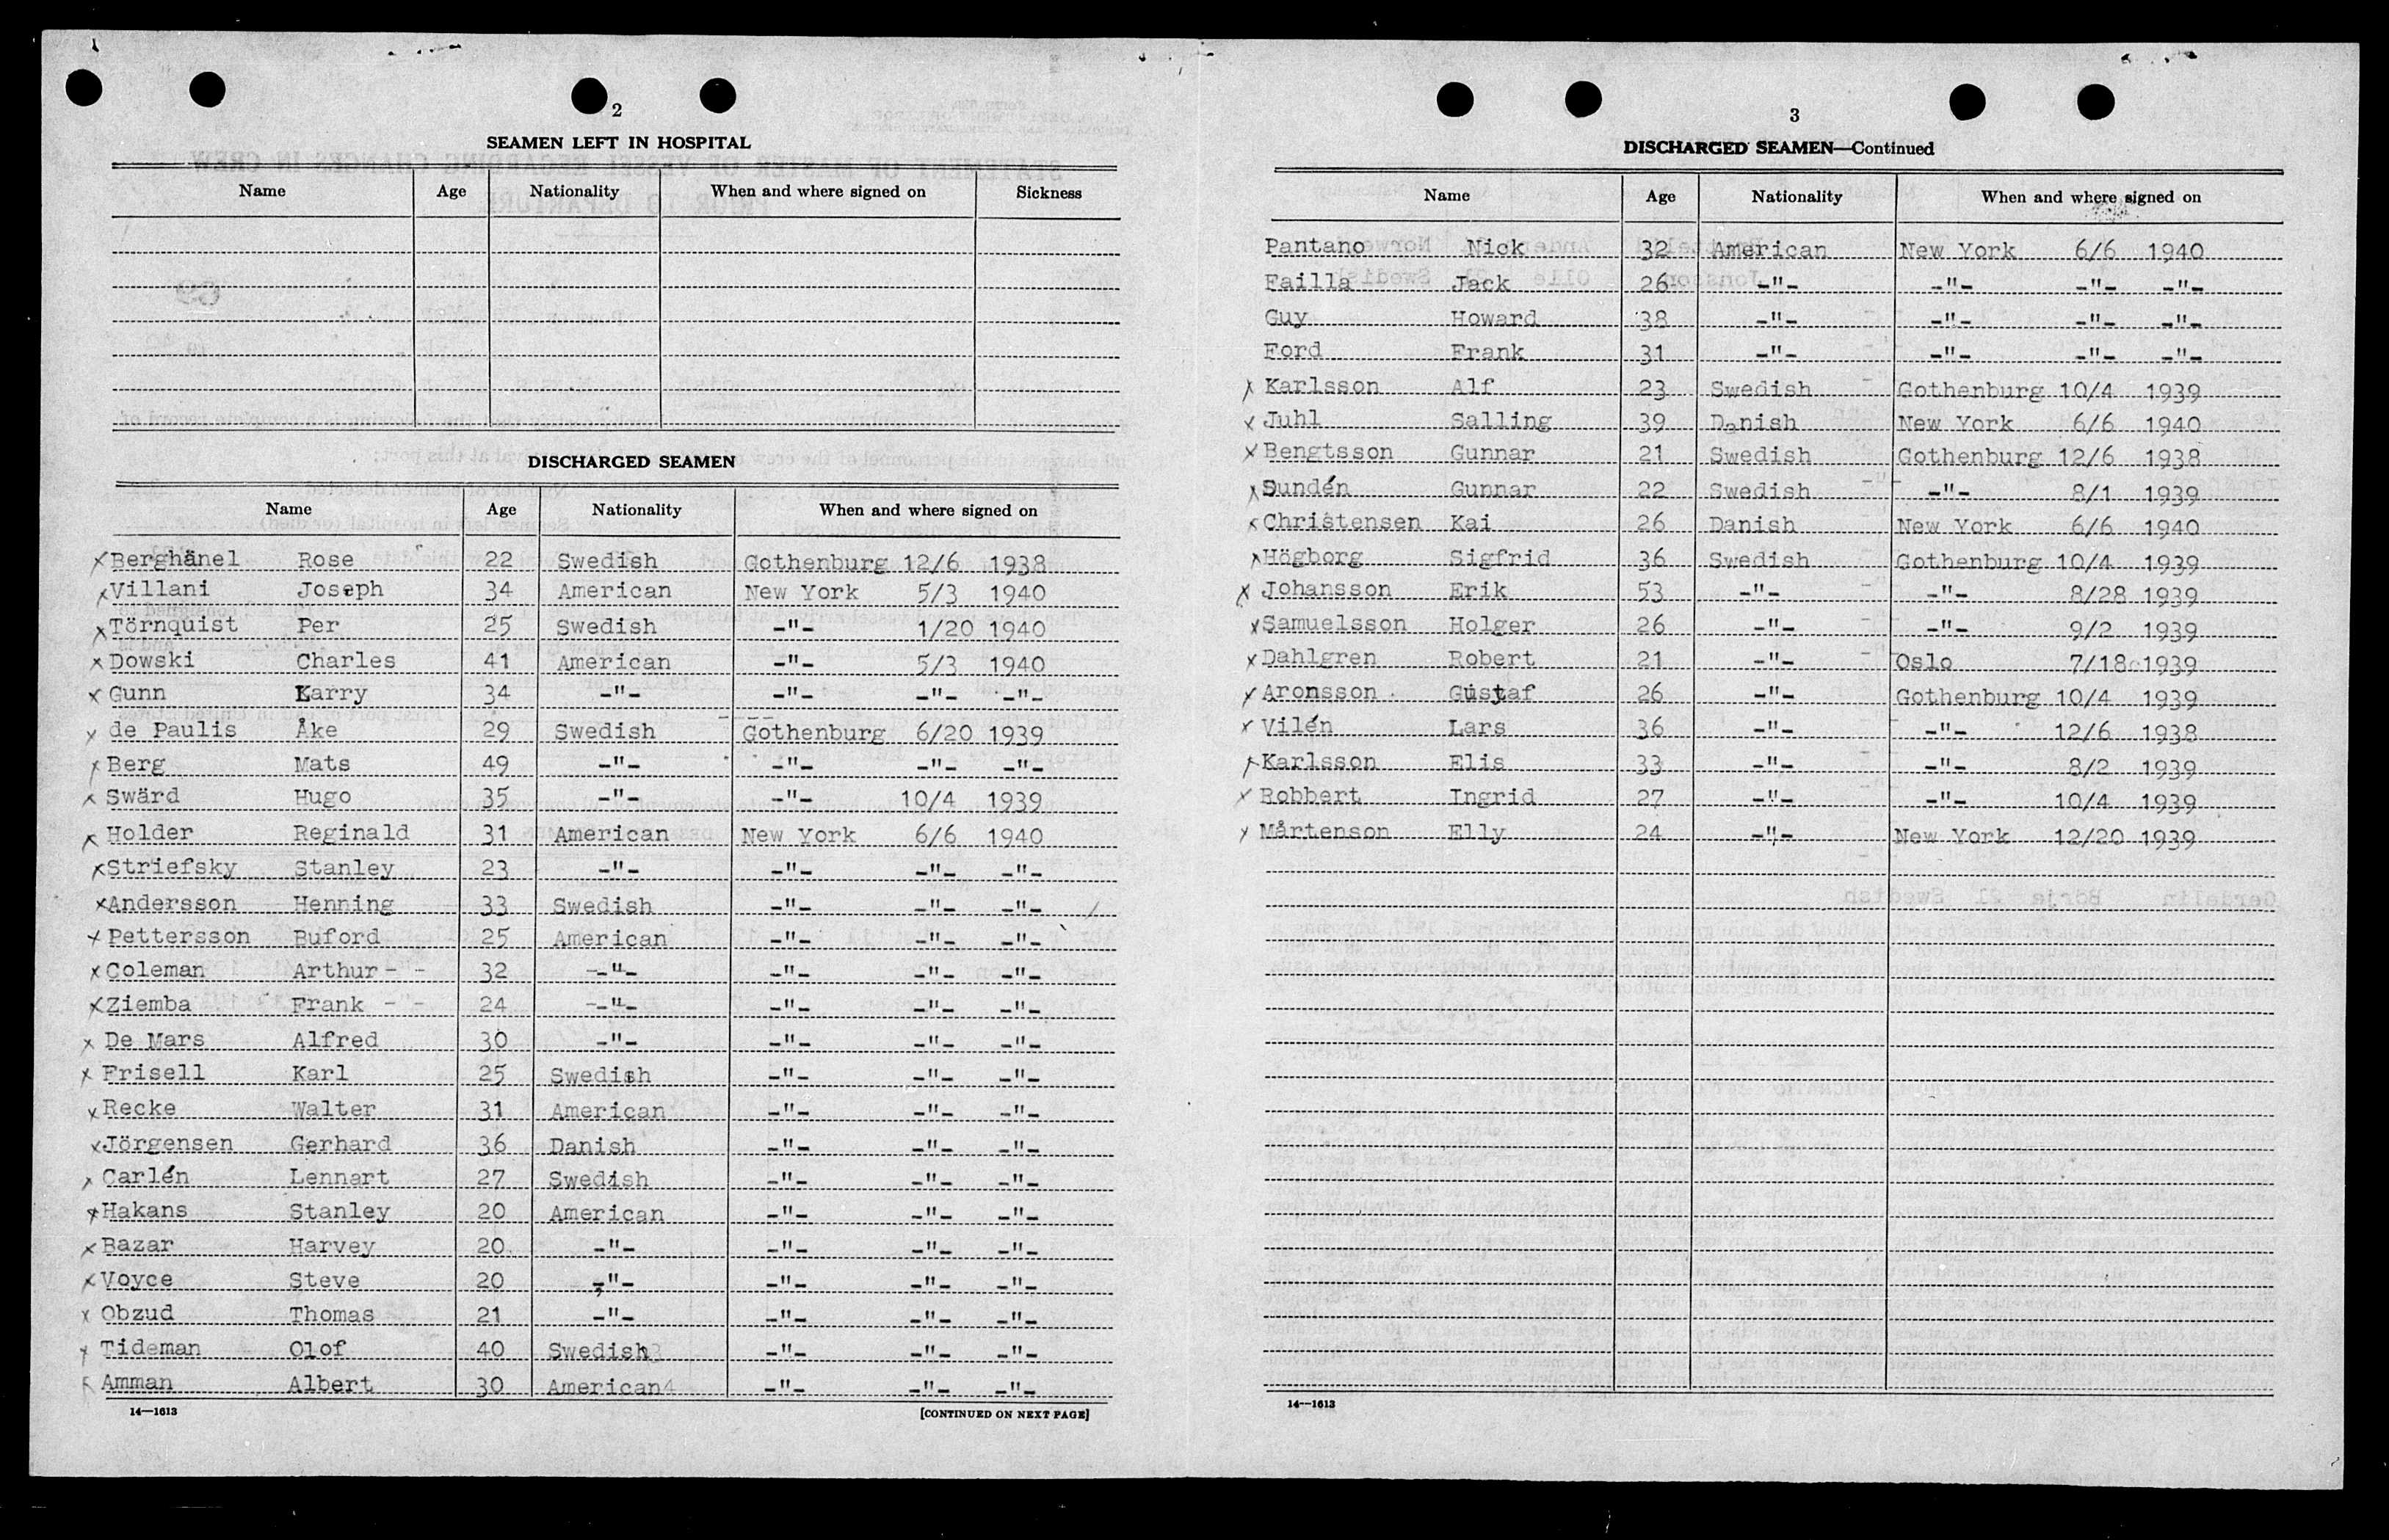 2
SEAMEN LEFT IN HOSPITAL
Name Age Nationality When and where signed on Sickness
DISCHARGED SEAMEN
Name Age Nationality When and where signed on
Berghänel Rose 22 Swedish Gothenburg 12/6 1938
Villani Joseph 34 American New York 5/3 1940
Törnquist Per 25 Swedish -"- 1/20 1940
Dowski Charles 41 American -"- 5/3 1940
Gunn Larry 34 -"- -"- -"- -"-
de Paulis Åke 29 Swedish Gothenburg 6/20 1939
Berg Mats 49 -"- -"- -"- -"-
Swärd Hugo 35 -"- -"- 10/4 1939
Holder Reginald 31 American New York 6/6 1940
Striefsky Stanley 23 -"- -"- -"- -"-
Andersson Henning 33 Swedish -"- -"- -"-
Pettersson Buford 25 American -"- -"- -"-
Coleman Arthur 32 -"- -"- -"- -"-
Ziemba Frank 24 -"- -"- -"- -"-
De Mars Alfred 30 -"- -"- -"- -"-
Frisell Karl 25 Swedish -"- -"- -"-
Recke Walter 31 American -"- -"- -"-
Jörgensen Gerhard 36 Danish -"- -"- -"-
Carlén Lennart 27 Swedish -"- -"- -"-
Hakans Stanley 20 American -"- -"- -"-
Bazar Harvey 20 -"- -"- -"- -"-
Voyce Steve 20 -"- -"- -"- -"-
Obzud Thomas 21 -"- -"- -"- -"-
Tideman Olof 40 Swedish -"- -"- -"-
Amman Albert 30 American -"- -"- -"-
14—1613 [CONTINUED ON NEXT PAGE]
3
DISCHARGED SEAMEN—Continued
Name Age Nationality When and where signed on
Pantano Nick 32 American New York 6/6 1940
Failla Jack 26 -"- -"- -"- -"-
Guy Howard 38 -"- -"- -"- -"-
Ford Frank 31 -"- -"- -"- -"-
Karlsson Alf 23 Swedish Gothenburg 10/4 1939
Juhl Salling 39 Danish New York 6/6 1940
Bengtsson Gunnar 21 Swedish Gothenburg 12/6 1938
Sundén Gunnar 22 Swedish -"- 8/1 1939
Christensen Kai 26 Danish New York 6/6 1940
Högborg Sigfrid 36 Swedish Gothenburg 10/4 1939
Johansson Erik 53 -"- -"- 8/28 1939
Samuelsson Holger 26 -"- -"- 9/2 1939
Dahlgren Robert 21 -"- Oslo 7/18 1939
Aronsson Gustaf 26 -"- Gothenburg 10/4 1939
Vilén Lars 36 -"- -"- 12/6 1938
Karlsson Elis 33 -"- -"- 8/2 1939
Robbert Ingrid 27 -"- -"- 10/4 1939
Mårtenson Elly 24 -"- New York 12/20 1939
14—1613